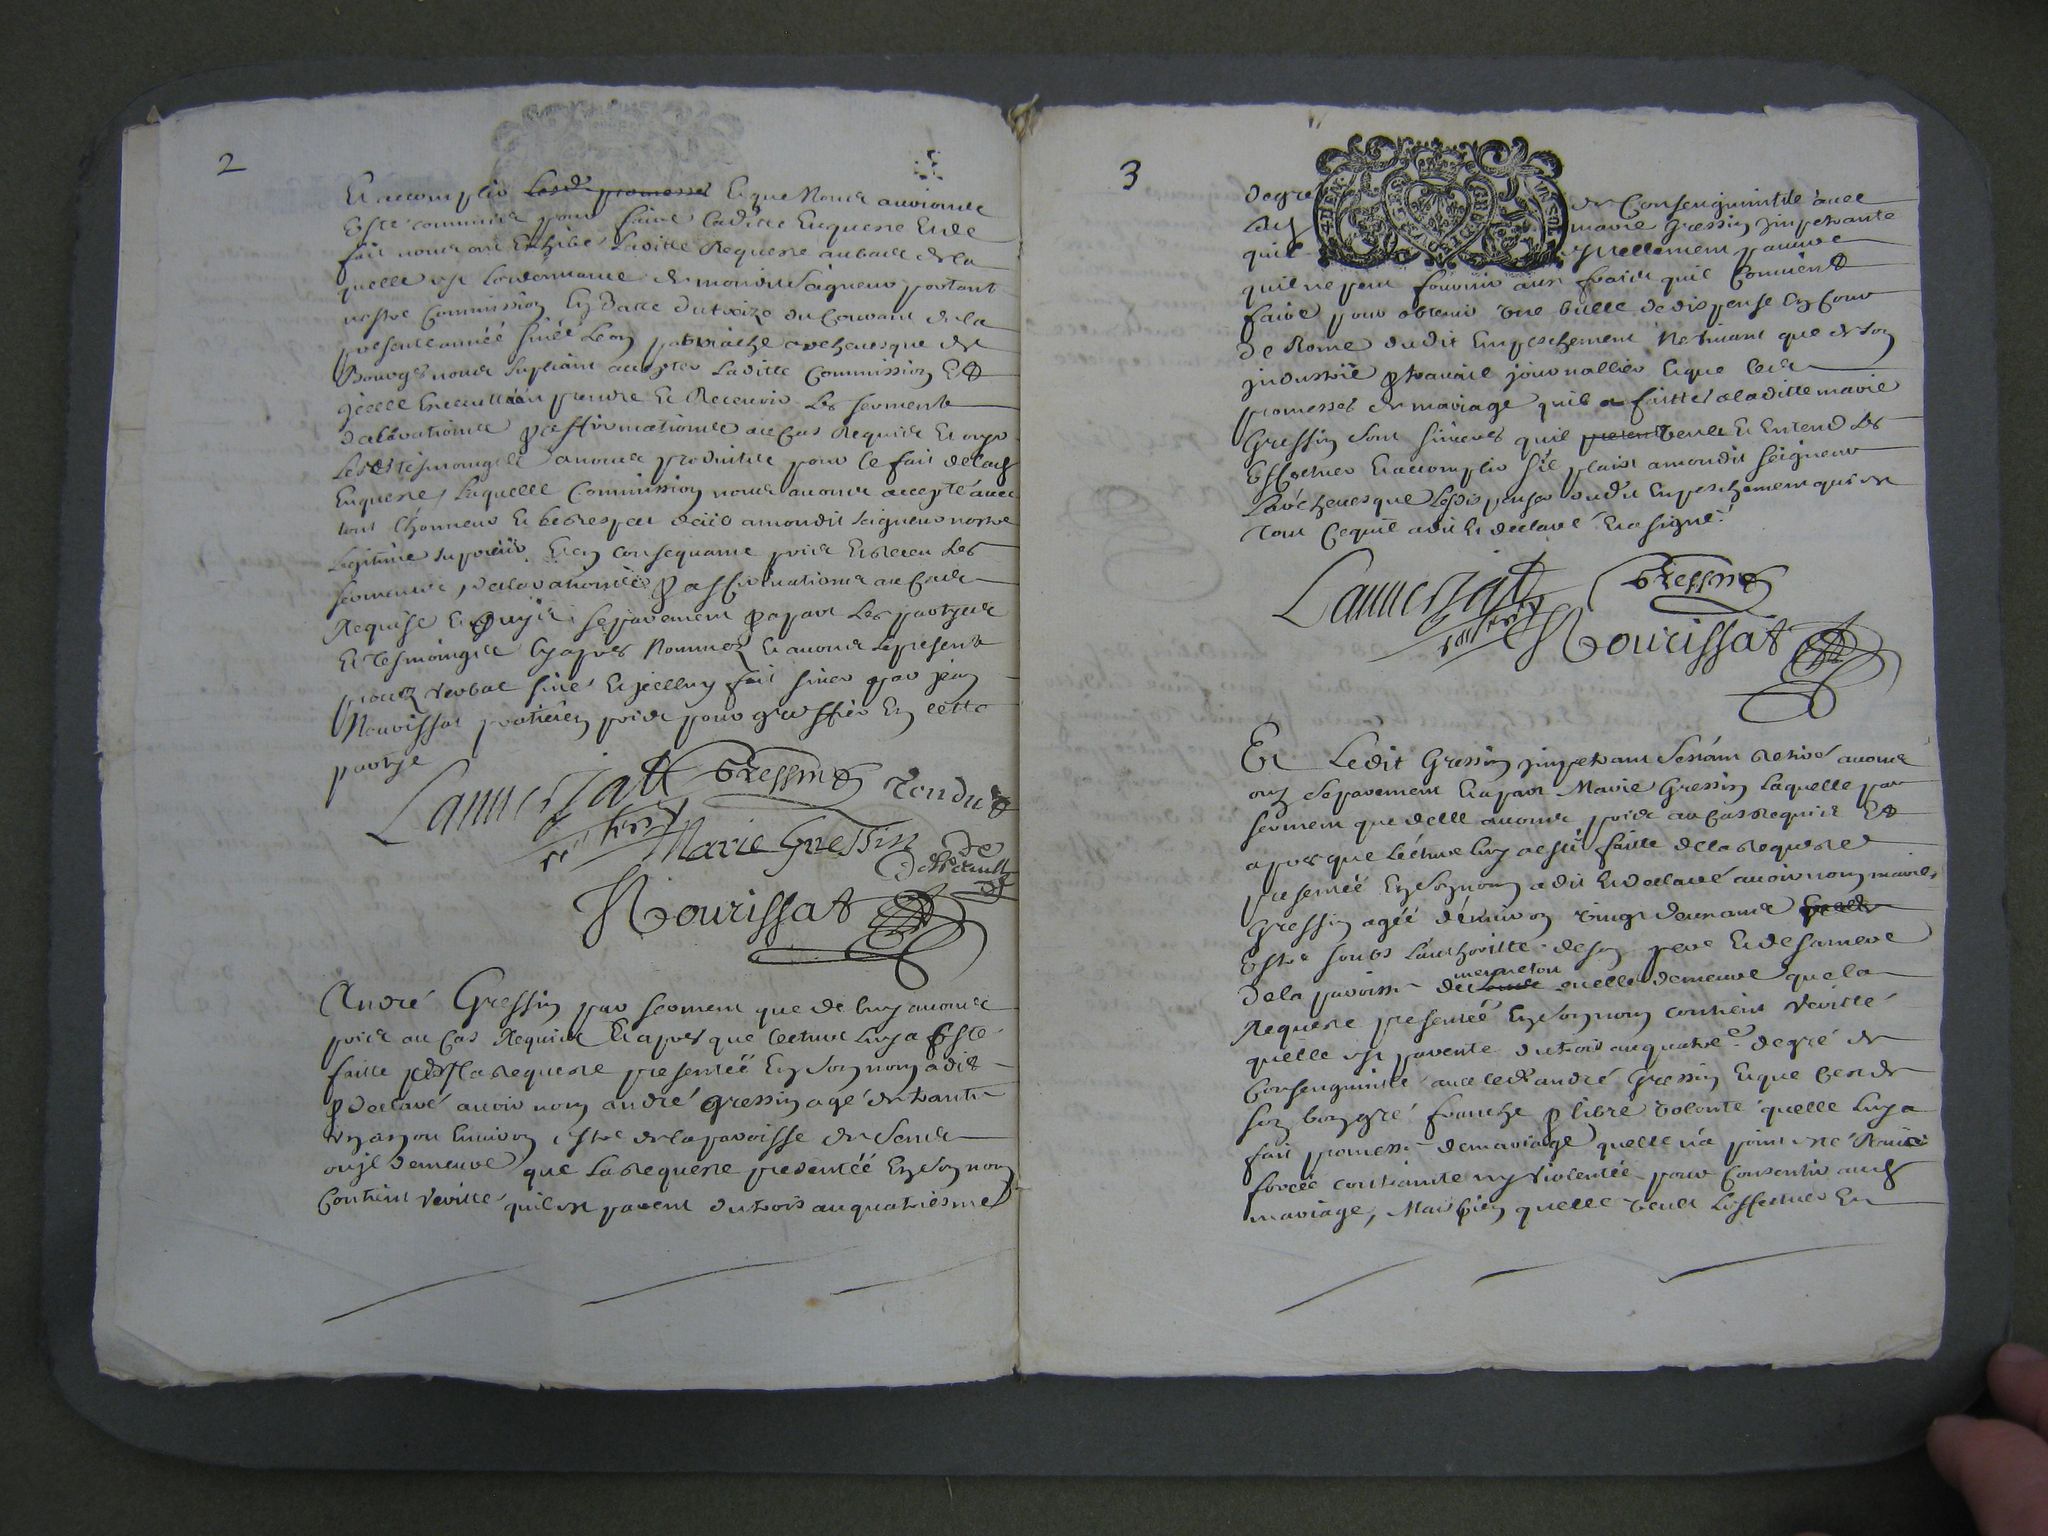 2
Et accomplir lesd promesses Et que Nous aurions
Esté commis pour faire laditte Enqueste Et de
fait nous ont Exhibé laditte Requeste au bas de la
quelle est lordonnance de mondit Seigneur portant
nostre Commission En datte du treize du Courant de la
presente année siné Leon patriache archevesque de
Bourges nous supliant accepter laditte Commission Et
jcelle Executtéé prendre Et Recevoir les serments
declarations affirmations au cas Requis Et ouyr
les tesmoingts a nous produitts pour le fait de lad
Enqueste, laquelle Commission nous avons accepté avec
tout lhonneur Et le respect deub a mondit seigneur nostre
legitime superieur Et en consequance pris Et Receu les
serments, declarations affirmations au cas
Requise Et ouyes separement apart les partyes
Et tesmoingts cy apres Nommez Et avons le present
procez verbal siné Et jcelluy fait siner par jean
Nourissat pris pour greffier En cette
partye
Gressin
Marie Gressin
Nourissat
André Gressin par serment que de luy avons
pris au Cas Requist Et apres que lecture luy a Esté
faitte de la requeste presentéé En son nom a dit
declaré avoir nom andré gressin agé de trante
ans ou Environ estre de la paroisse de Sens
ou jl demeure que la requeste presentéé En son nom
Contient verité quil est parent du trois au quatriesme
3
degré de Consenguinitté avec
lad marie Gressin jmpetrante
quil Est tellement pauvre
quil ne peut fournir aux fraits quil Convient
faire pour obtenir une bulle de dispense En Cour
de Rome dudit Empeschement Ne vivant que de son
jndustrie travail journallier Et que les
promesses de mariage quil a faittes a laditte marie
Gressin sont sinceres quil veult Et Entend les
Effectuer Et accomplir sil plaist a mondit seigneur
larcheuesque les dispenser dudit Empeschement qui est
tout Ce quil a dit Et declaré Et a signé
Gressin
Nourissat
Et Ledit Gressin jmpetrant sestant retiré avons
ouy separement Et apart Marie Gressin laquelle par
serment que delle avons pris au Cas requis Et
apres que lecture luy a esté faitte de la requeste
presentéé En son nom a dit Et declaré avoir nom marie
Gressin agéé denviron vingt deux ans
Estre soubs lauthoritté de son pere Et de sa mere
de la paroisse de menneton ou elle demeure que la
Requeste presentéé En son nom contient verité
quelle est parente du trois au quatre degré de
Consenguinité avec led andré Gressin Et que Cest de
son bon gré franche libre volonté quelle luy a
fait promesse de mariage quelle na point esté Ravie
forcéé contrainte ny violentéé pour Consentir aud
mariage, Mais bien quelle veult leffectuer Et